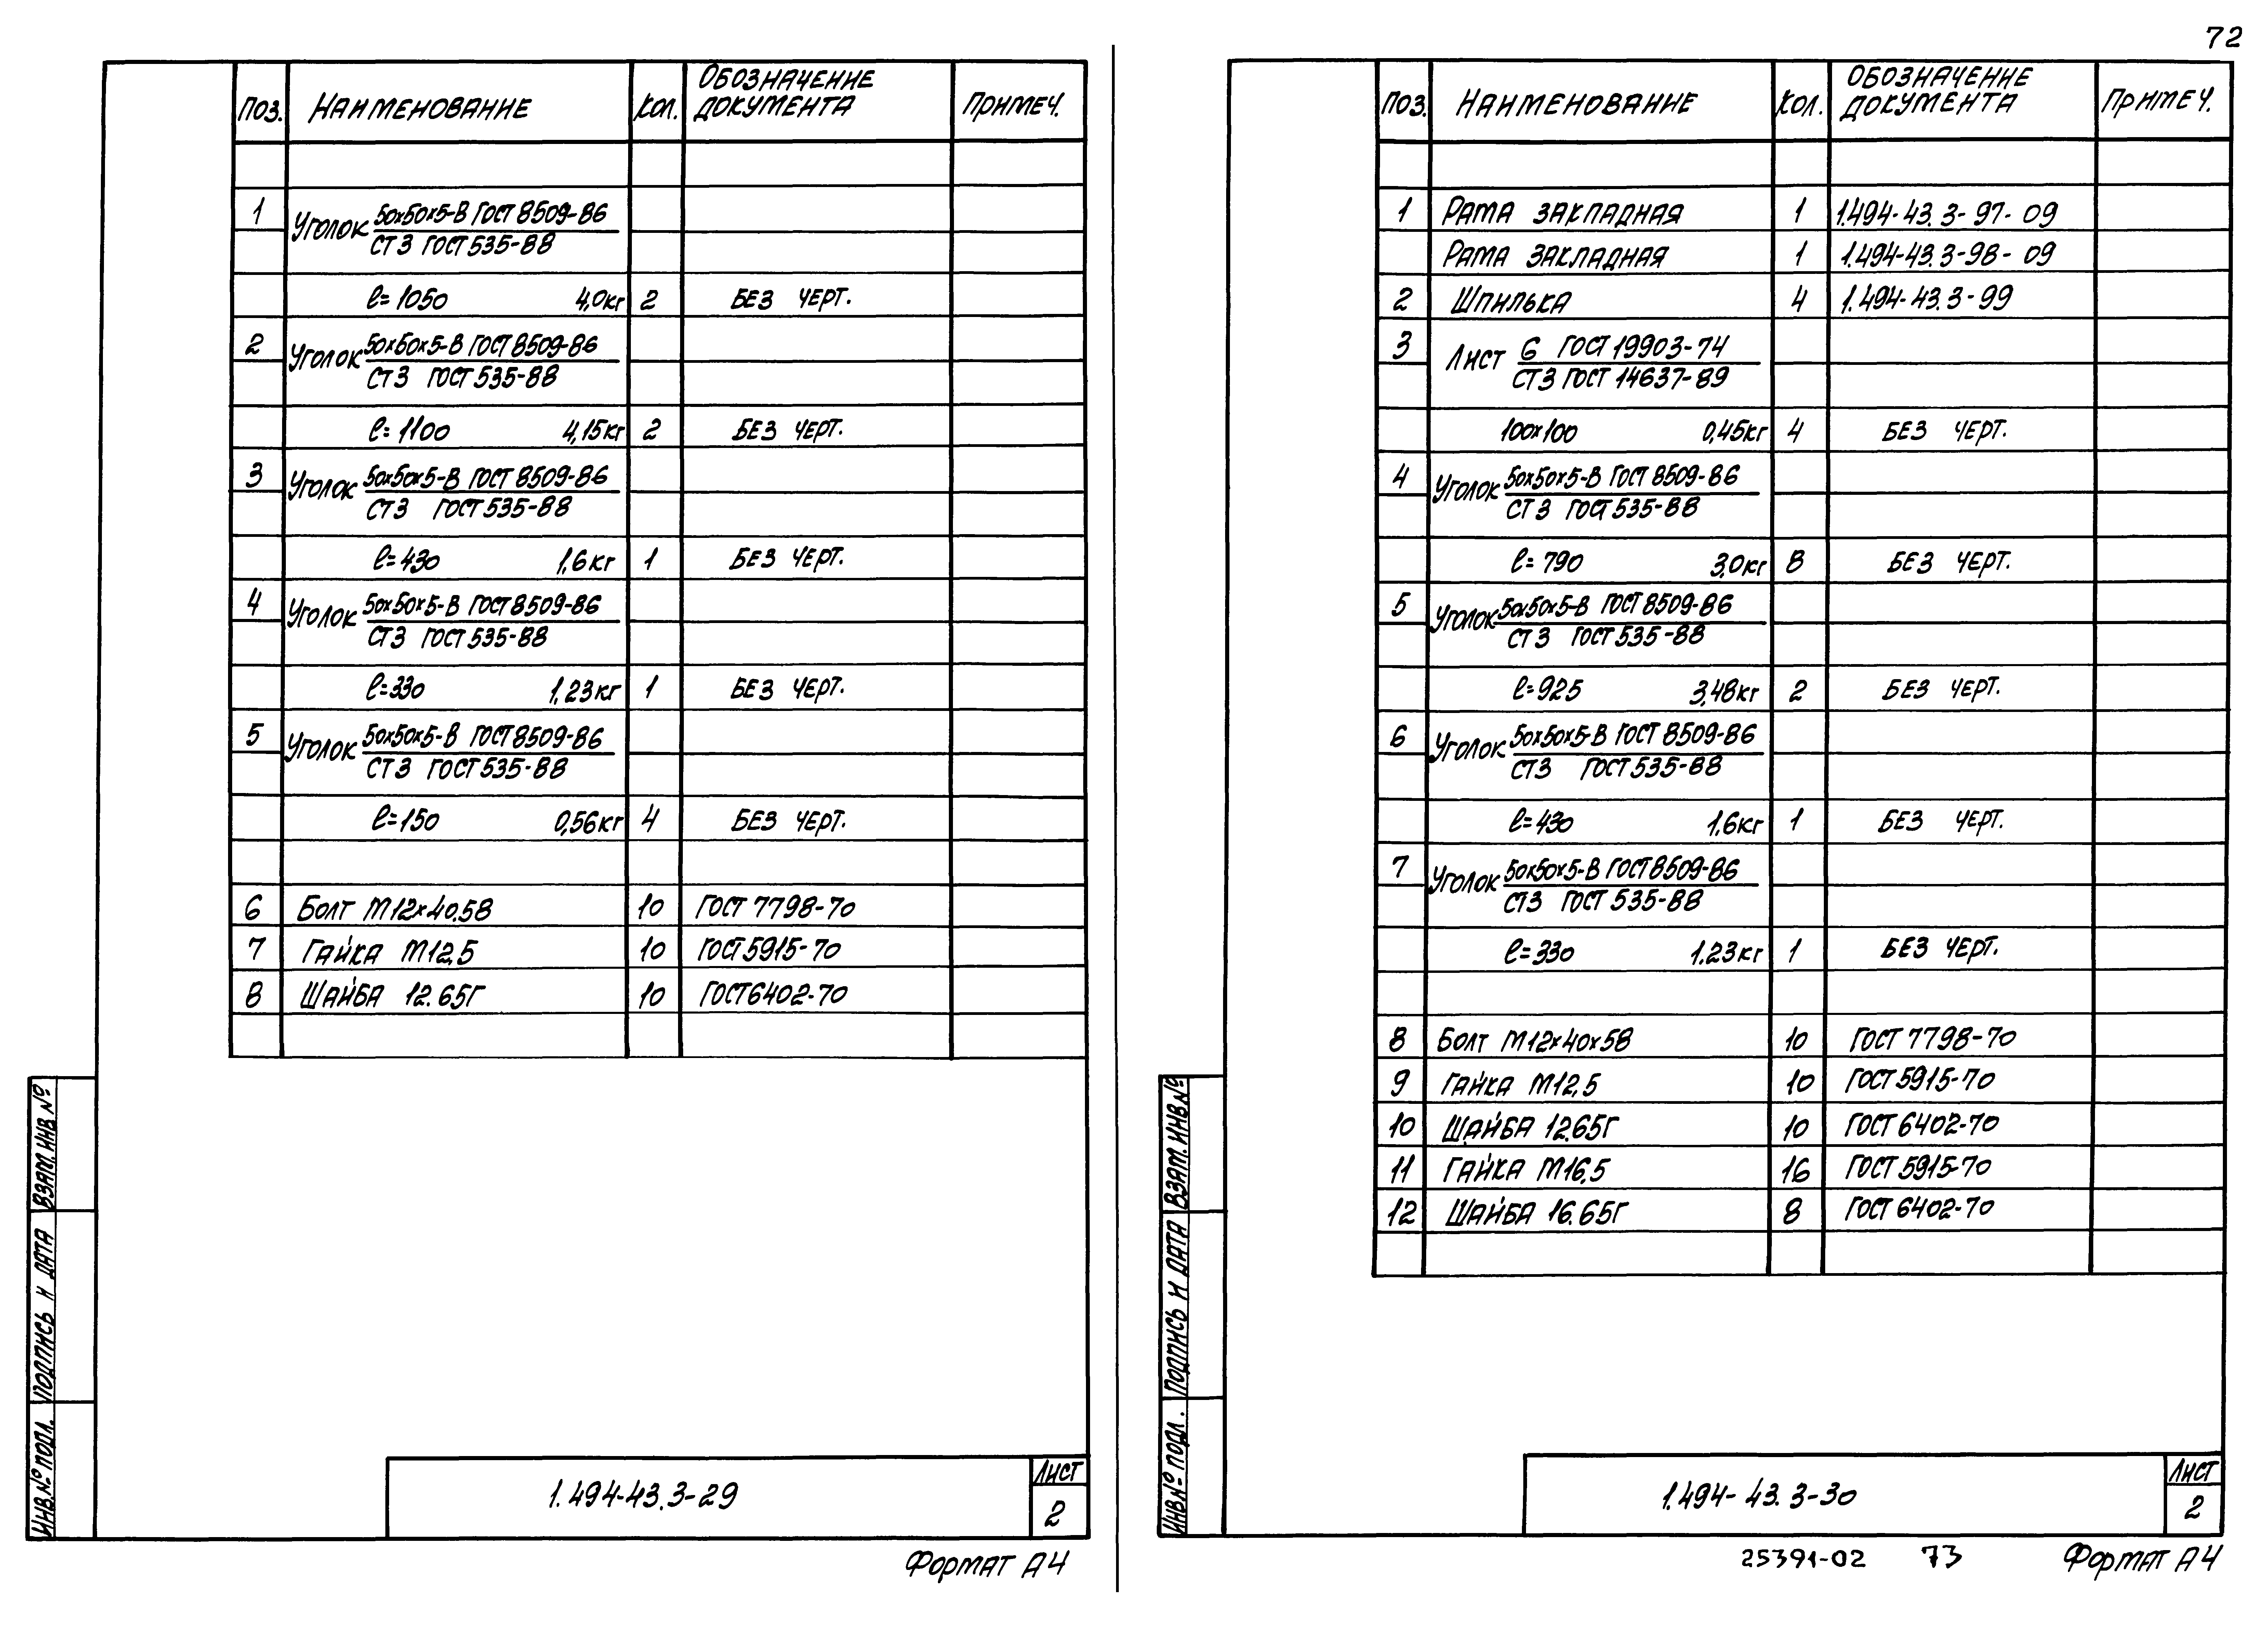 72
ПОЗ. НАИМЕНОВАНИЕ КОЛ. ОБОЗНАЧЕНИЕ ДОКУМЕНТА ПРИМЕЧ.
1 УГОЛОК 50х50х5-В ГОСТ 8509-86
СТ 3 ГОСТ 535-88
ℓ=1050 4,0кг 2 БЕЗ ЧЕРТ.
2 УГОЛОК 50х50х5-В ГОСТ 8509-86
СТ 3 ГОСТ 535-88
ℓ=1100 4,15кг 2 БЕЗ ЧЕРТ.
3 УГОЛОК 50х50х5-В ГОСТ 8509-86
СТ 3 ГОСТ 535-88
ℓ=430 1,6кг 1 БЕЗ ЧЕРТ.
4 УГОЛОК 50х50х5-В ГОСТ 8509-86
СТ 3 ГОСТ 535-88
ℓ=330 1,23кг 1 БЕЗ ЧЕРТ.
5 УГОЛОК 50х50х5-В ГОСТ 8509-86
СТ 3 ГОСТ 535-88
ℓ=150 0,56кг 4 БЕЗ ЧЕРТ.
6 БОЛТ М12х40.58 10 ГОСТ 7798-70
7 ГАЙКА М12,5 10 ГОСТ 5915-70
8 ШАЙБА 12.65Г 10 ГОСТ 6402-70
ИНВ.№ ПОДЛ. ПОДПИСЬ И ДАТА ВЗАМ.ИНВ.№
1.494-43.3-29
ЛИСТ
2
ФОРМАТ А4
ПОЗ. НАИМЕНОВАНИЕ КОЛ. ОБОЗНАЧЕНИЕ ДОКУМЕНТА ПРИМЕЧ.
1 РАМА ЗАКЛАДНАЯ 1 1.494-43.3-97-09
РАМА ЗАКЛАДНАЯ 1 1.494-43.3-98-09
2 ШПИЛЬКА 4 1.494-43.3-99
3 ЛИСТ 6 ГОСТ 19903-74
СТ 3 ГОСТ 14637-89
100х100 0,45кг 4 БЕЗ ЧЕРТ.
4 УГОЛОК 50х50х5-В ГОСТ 8509-86
СТ 3 ГОСТ 535-88
ℓ=790 3,0кг 8 БЕЗ ЧЕРТ.
5 УГОЛОК 50х50х5-В ГОСТ 8509-86
СТ 3 ГОСТ 535-88
ℓ=925 3,48кг 2 БЕЗ ЧЕРТ.
6 УГОЛОК 50х50х5-В ГОСТ 8509-86
СТ 3 ГОСТ 535-88
ℓ=430 1,6кг 1 БЕЗ ЧЕРТ.
7 УГОЛОК 50х50х5-В ГОСТ 8509-86
СТ3 ГОСТ 535-88
ℓ=330 1.23кг 1 БЕЗ ЧЕРТ.
8 БОЛТ М12х40х58 10 ГОСТ 7798-70
9 ГАЙКА М12,5 10 ГОСТ 5915-70
10 ШАЙБА 12.65Г 10 ГОСТ 6402-70
11 ГАЙКА М16,5 16 ГОСТ 5915-70
12 ШАЙБА 16.65Г 8 ГОСТ 6402-70
ИНВ.№ ПОДЛ. ПОДПИСЬ И ДАТА ВЗАМ.ИНВ.№
1.494-43.3-30
ЛИСТ
2
25391-02 73 ФОРМАТ А4